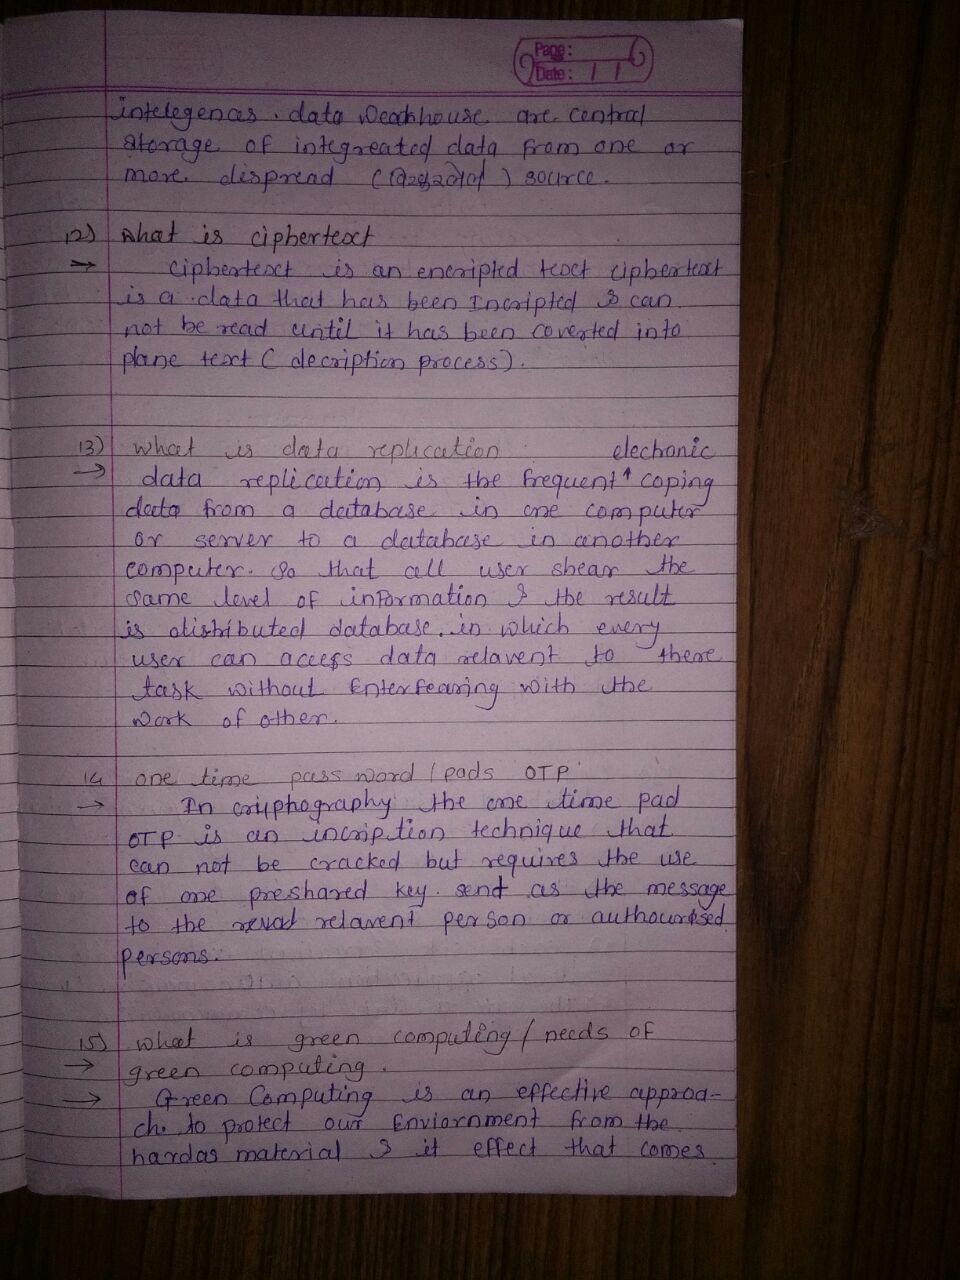 Page:
Date: / /
intelegences. data weakhouse are central
storage of integreated data from one or
more dispread ( ) source.
12) what is ciphertext
→ ciphertext is an encripted text ciphertext
is a data that has been Incripted & can
not be read until it has been coverted into
plane text ( decription process).
13) what is data replication electronic
→ data replication is the frequent ↑ coping
data from a database in one computer
or server to a database in another
computer. so that all user shear the
same level of information & the result
is distributed database. in which every
user can access data relavent to there
task without Enterfearing with the
work of other.
14 one time pass word / pads OTP
→ In criyphography the one time pad
OTP is an incription technique that
can not be cracked but requires the use
of one preshared key. send as the message
to the relavent person or authourised
persons.
15) what is green computing / needs of
→ green computing.
→ Green Computing is an effective approa-
ch. to protect our Enviornment from the
hardas material & it effect that comes